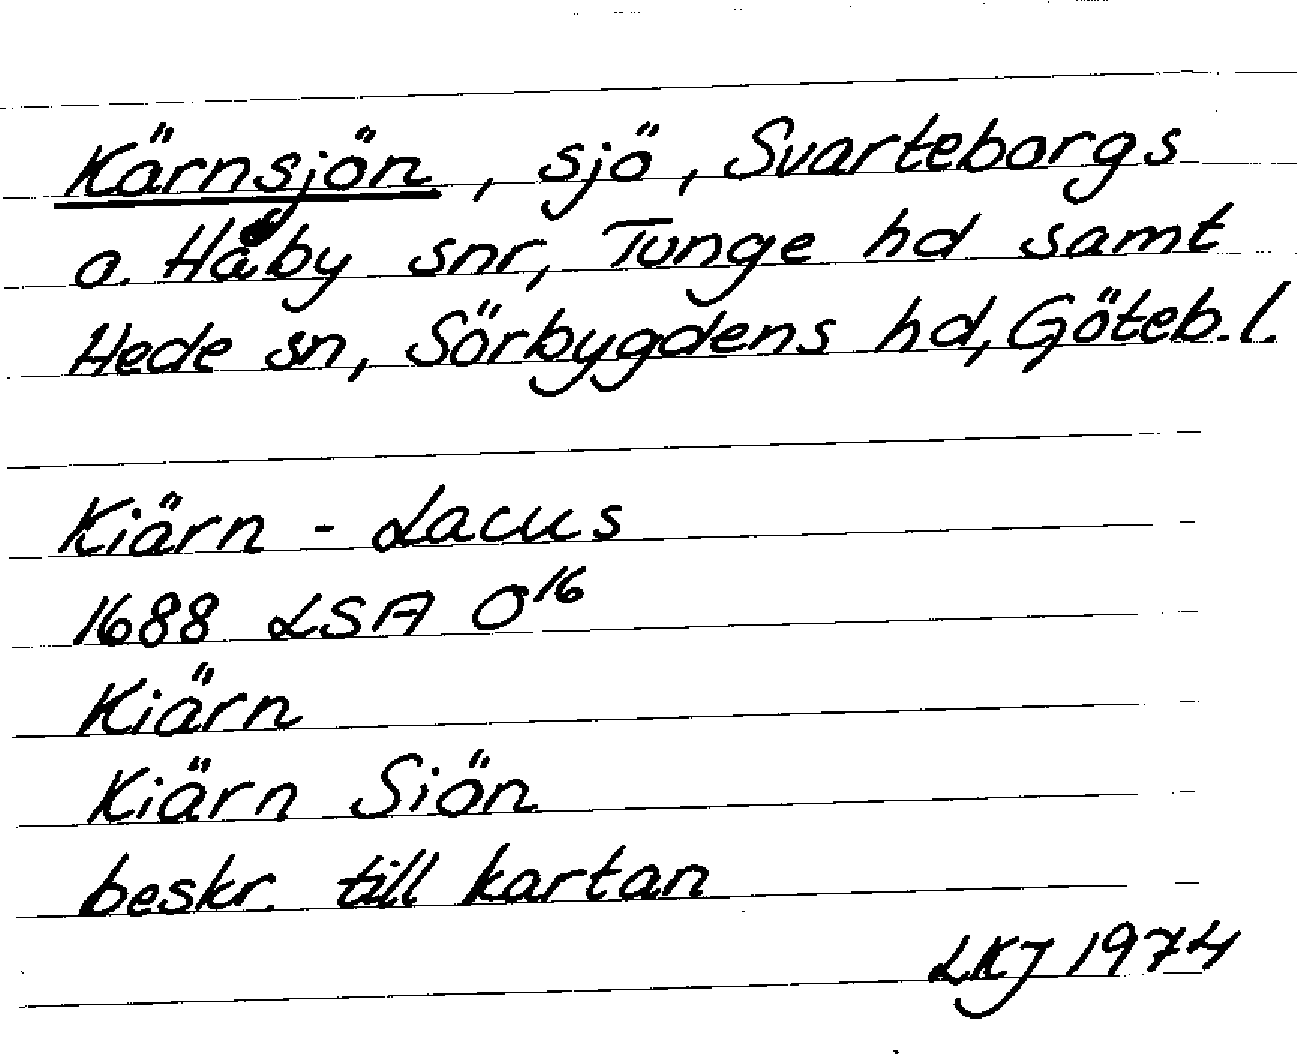 Kärnsjön, sjö, Svarteborgs
o. Håby snr, Tunge hd samt
Hede sn, Sörbygdens hd, Göteb. l.
Kiärn - Lacus
1688 LSA O16
Kiärn
Kiärn Siön
beskr. till kartan
LKJ 1974